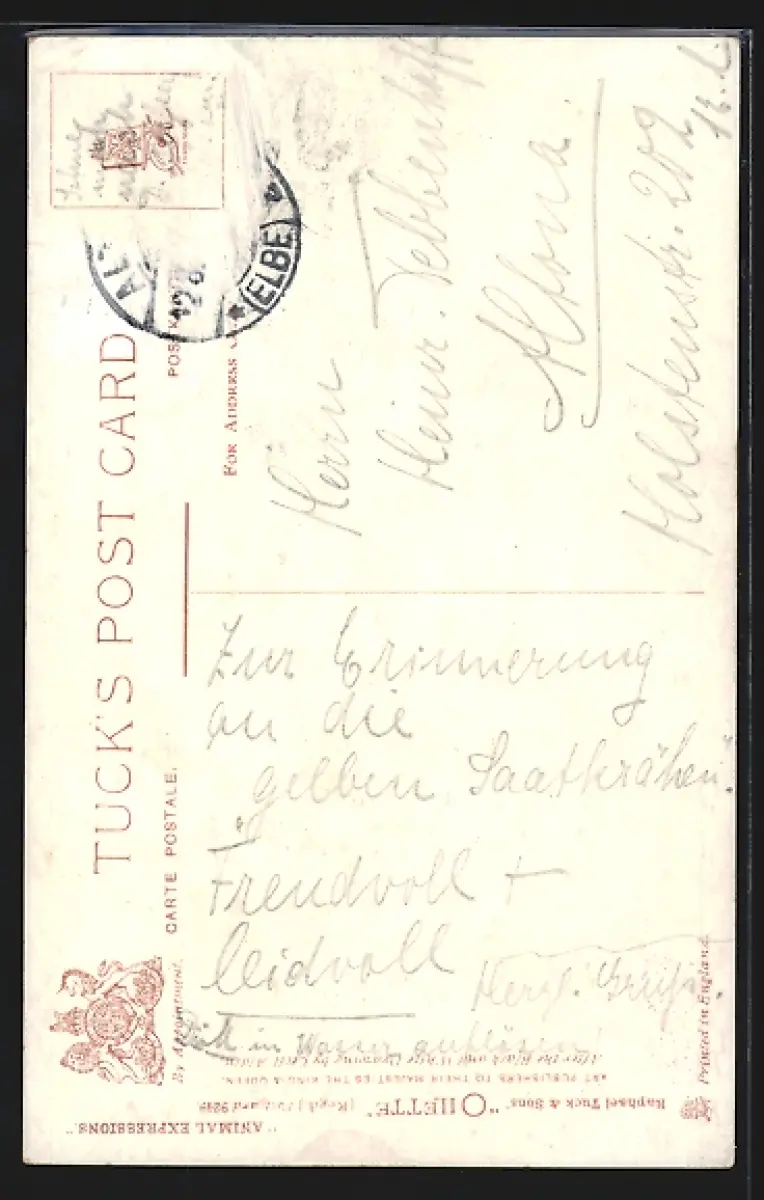 TUCK'S POST CARD
CARTE POSTALE.
POSTKARTE
FOR ADDRESS
By Appointment.
(ELBE)
Herrn
Heinr. Tebbenhoff
Altona.
Holstenstr. 202
Zur Erinnerung
an die
"gelben Saatkrähen".
Freudvoll +
leidvoll
Herzl. Gruß.
in Wasser auflösen!
"ANIMAL EXPRESSIONS."
Raphael Tuck & Sons' "OILETTE"
ART PUBLISHERS TO THEIR MAJESTIES THE KING & QUEEN.
After the Black and White Drawing by Cecil Aldin.
Printed in England.